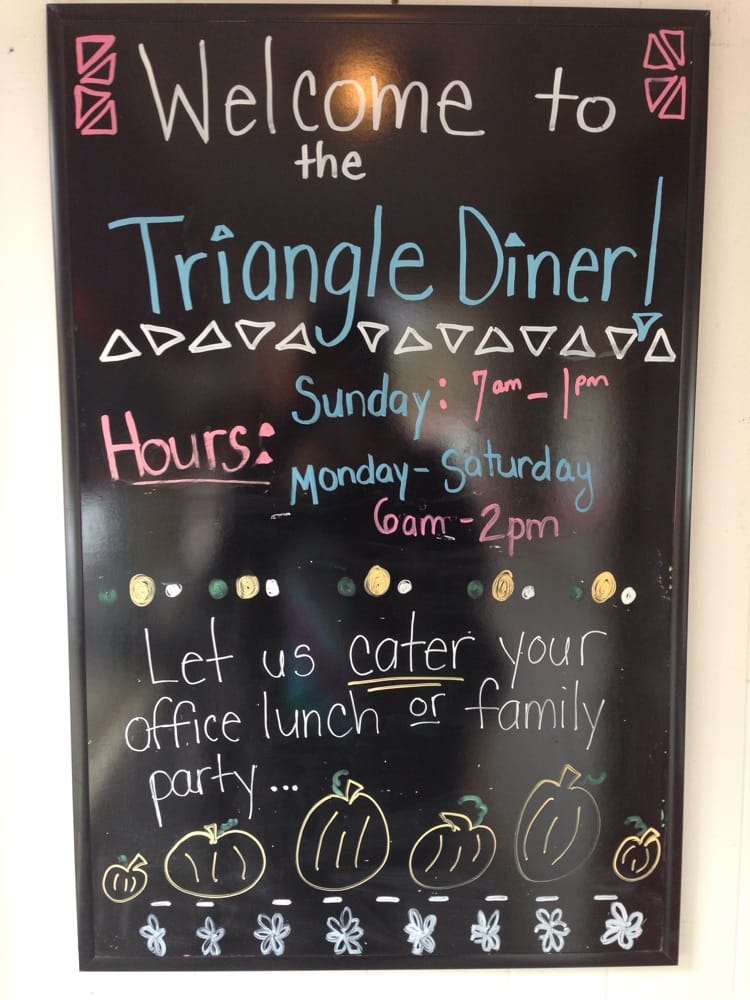 Welcome to
the
Triangle Diner!
Sunday: 7am - 1pm
Hours:
Monday - Saturday
6am - 2pm
Let us cater your
office lunch or family
party...